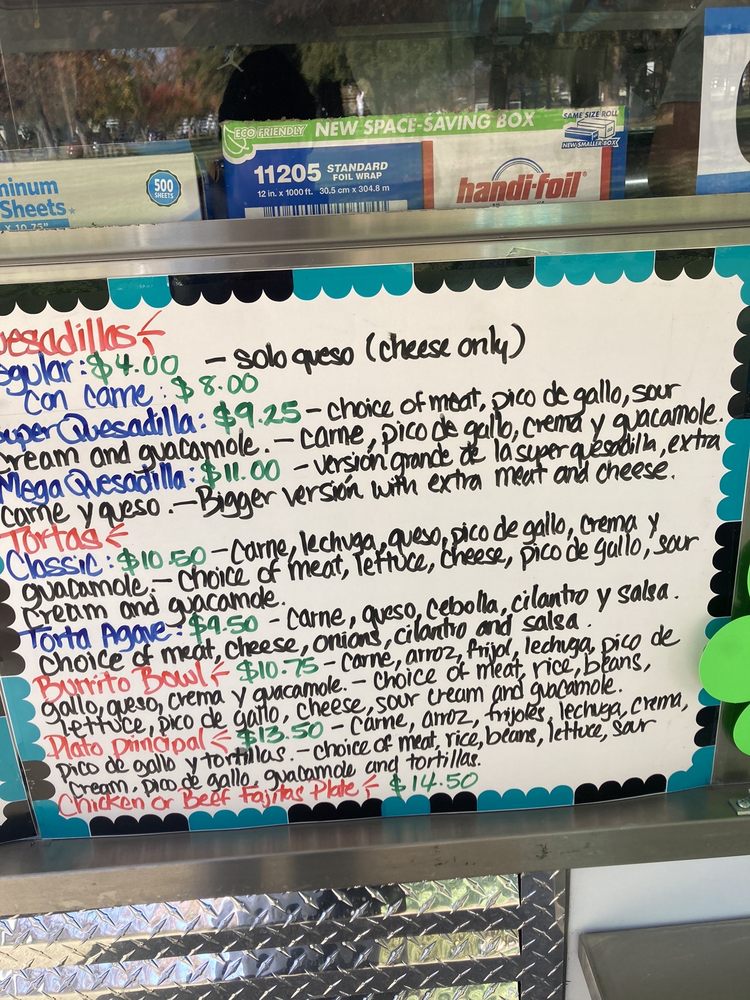 ECO FRIENDLY NEW SPACE-SAVING BOX
SAME SIZE ROLL
NEW SMALLER BOX
11205 STANDARD FOIL WRAP
12 in. x 1000 ft. 30.5 cm x 304.8 m
handi-foil
minum
Sheets
500 SHEETS
x 10.75"
uesadillas
egular: $4.00 - solo queso (cheese only)
con carne: $8.00
Super Quesadilla: $9.25 - choice of meat, pico de gallo, sour
cream and guacamole. - carne, pico de gallo, crema y guacamole.
Mega Quesadilla: $11.00 - versión grande de la super quesadilla, extra
carne y queso. - Bigger versión with extra meat and cheese.
Tortas
Classic: $10.50 - Carne, lechuga, queso, pico de gallo, crema y
guacamole. - choice of meat, lettuce, cheese, pico de gallo, sour
cream and guacamole.
Torta Agave: $9.50 - carne, queso, cebolla, cilantro y salsa.
choice of meat, cheese, onions, cilantro and salsa.
Burrito Bowl $10.75 - carne, arroz, frijol, lechuga, pico de
gallo, queso, crema y guacamole. - choice of meat, rice, beans,
lettuce, pico de gallo, cheese, sour cream and guacamole.
Plato principal $13.50 - carne, arroz, frijoles, lechuga, crema,
pico de gallo y tortillas. - choice of meat, rice, beans, lettuce, sour
cream, pico de gallo, guacamole and tortillas.
Chicken or Beef Fajitas Plate $14.50